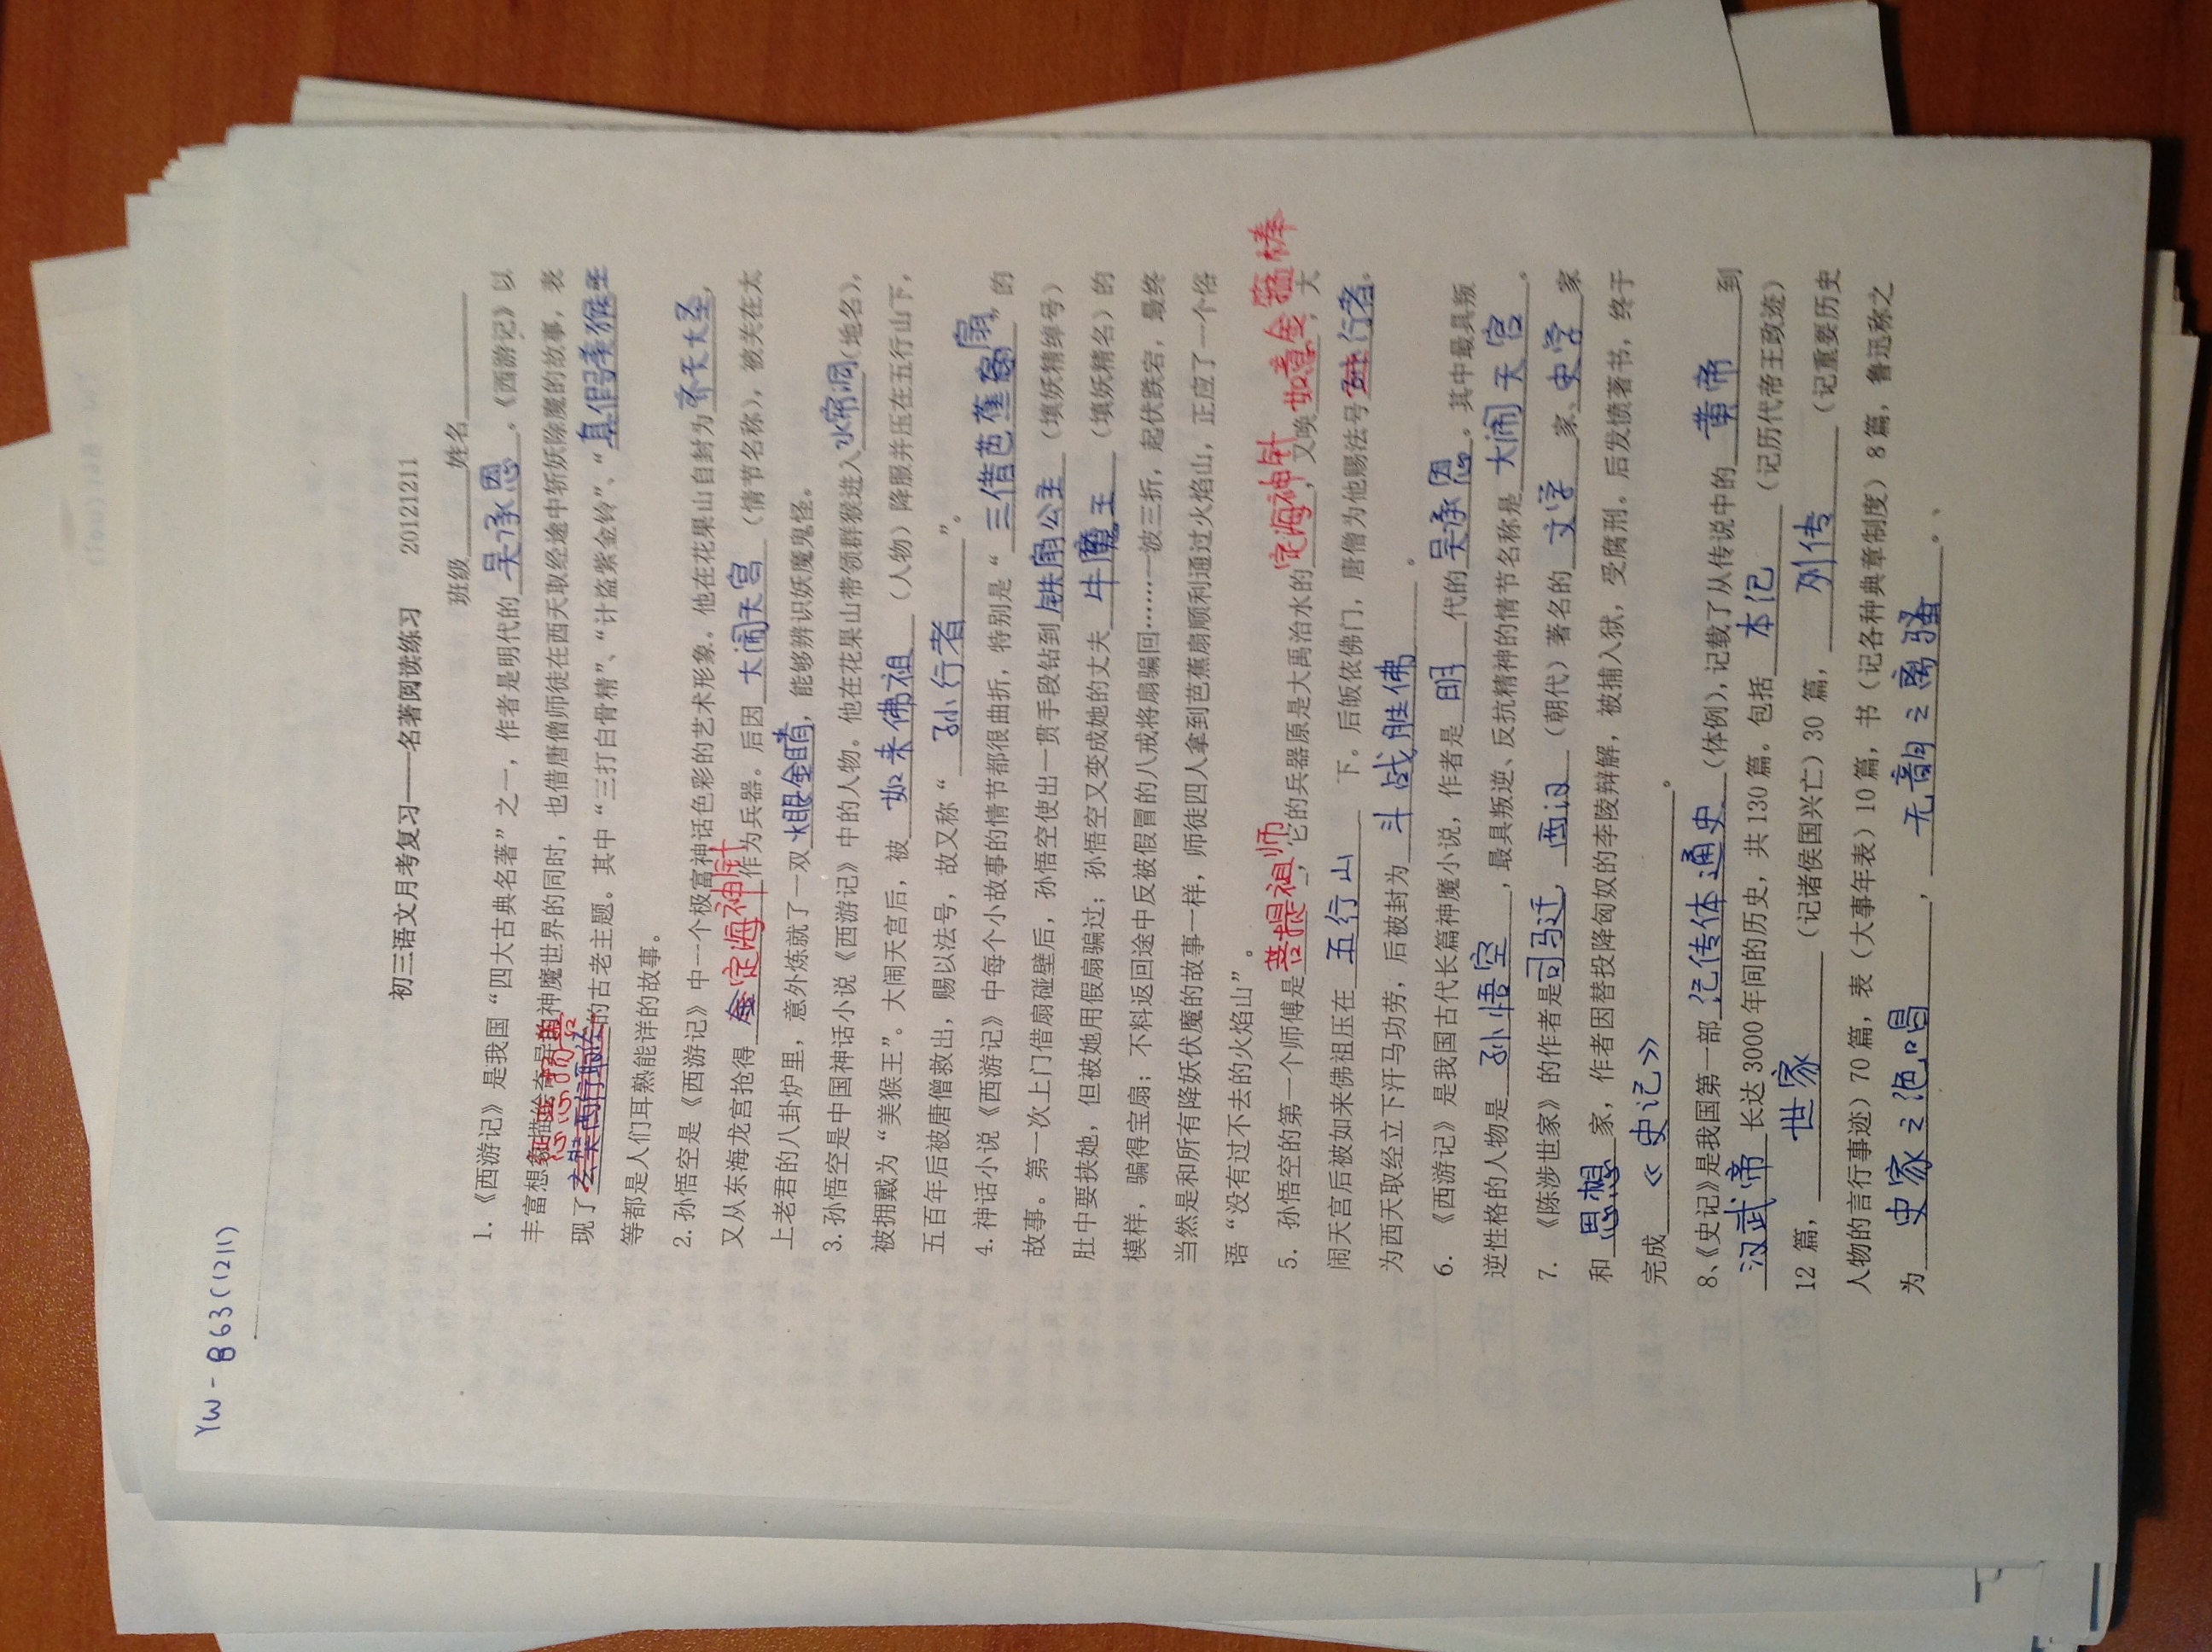 YW-B63(1211)
初三语文月考复习——名著阅读练习 20121211
班级______姓名______
1.《西游记》是我国“四大古典名著”之一，作者是明代的 吴承恩 。《西游记》以
丰富想象描绘奇异的神魔世界的同时，也借唐僧师徒在西天取经途中斩妖除魔的故事，表
惩恶扬善
现了玄奘西行取经的古老主题。其中“三打白骨精”、“计盗紫金铃”、“真假美猴王
等都是人们耳熟能详的故事。
2.孙悟空是《西游记》中一个极富神话色彩的艺术形象。他在花果山自封为齐天大圣，
又从东海龙宫抢得 定海神针 作为兵器。后因 大闹天宫 （情节名称），被关在太
上老君的八卦炉里，意外炼就了一双火眼金睛，能够辨识妖魔鬼怪。
3.孙悟空是中国神话小说《西游记》中的人物。他在花果山带领群猴进入水帘洞（地名），
被拥戴为“美猴王”。大闹天宫后，被 如来佛祖 （人物）降服并压在五行山下，
五百年后被唐僧救出，赐以法号，故又称“ 孙行者 ”。
4.神话小说《西游记》中每个小故事的情节都很曲折，特别是“ 三借芭蕉扇 ”的
故事。第一次上门借扇碰壁后，孙悟空使出一贯手段钻到 铁扇公主 （填妖精绰号）
肚中要挟她，但被她用假扇骗过；孙悟空又变成她的丈夫 牛魔王 （填妖精名）的
模样，骗得宝扇；不料返回途中反被假冒的八戒将扇骗回……一波三折，起伏跌宕，最终
当然是和所有降妖伏魔的故事一样，师徒四人拿到芭蕉扇顺利通过火焰山，正应了一个俗
语“没有过不去的火焰山”。
5. 孙悟空的第一个师傅是菩提祖师，它的兵器原是大禹治水的定海神针，又唤如意金箍棒，大
闹天宫后被如来佛祖压在 五行山 下。后皈依佛门，唐僧为他赐法号 行者。
为西天取经立下汗马功劳，后被封为 斗战胜佛 。
6. 《西游记》是我国古代长篇神魔小说，作者是 明 代的吴承恩。其中最具叛
逆性格的人物是 孙悟空 ，最具叛逆、反抗精神的情节名称是 大闹天宫 。
7. 《陈涉世家》的作者是司马迁， 西汉 （朝代）著名的 文学 家、史学 家
和 思想 家，作者因替投降匈奴的李陵辩解，被捕入狱，受腐刑。后发愤著书，终于
完成 《史记》 。
8、《史记》是我国第一部 纪传体通史 （体例），记载了从传说中的 黄帝 到
汉武帝 长达 3000 年间的历史，共 130 篇。包括 本记 （记历代帝王政迹）
12 篇， 世家 （记诸侯国兴亡）30 篇， 列传 （记重要历史
人物的言行事迹）70 篇，表（大事年表）10 篇，书（记各种典章制度）8 篇，鲁迅称之
为 史家之绝唱 ， 无韵之离骚 。